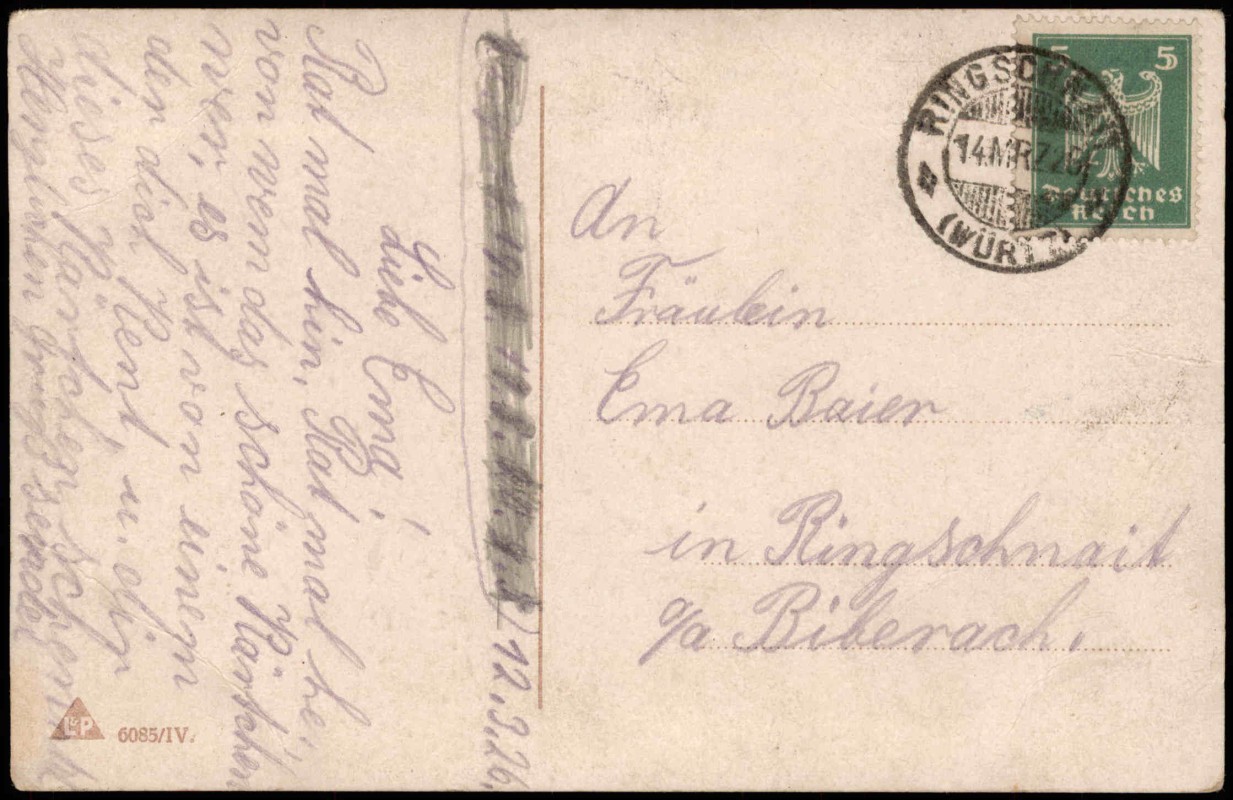 12.3.26.
Liebe Erna!
Rat mal hin, Rat mal her,
von wem das schöne Kärtchen
wer, es ist von einem
der dich kent, u. dir
dieses Kärtchen schenkt
Herzlichen Gruß sendet
An
Fräulein
Erna Baier
in Ringschnait
o/a Biberach.
RINGSCHNAIT
14.MRZ.26
(WÜRTT)
5 5
Deutsches
Reich
L&P
6085/IV.